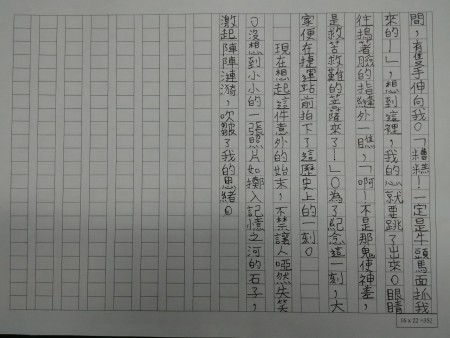 間，有隻手伸向我。「糟糕！一定是牛頭馬面抓我
來的！」，想到這裡，我的心就要跳了出來。眼睛
往搗著臉的指縫外一瞧，「啊！不是那鬼使神差，
是救苦救難的菩薩來了！」。為了紀念這一刻，大
家便在捷運站前拍下了這歷史上的一刻。
現在想起這件意外的始末，不禁讓人啞然失笑
。沒想到小小的一張照片如擲入記憶之河的石子，
激起陣陣漣漪，吹皺了我的思緒。
16 x 22 =352